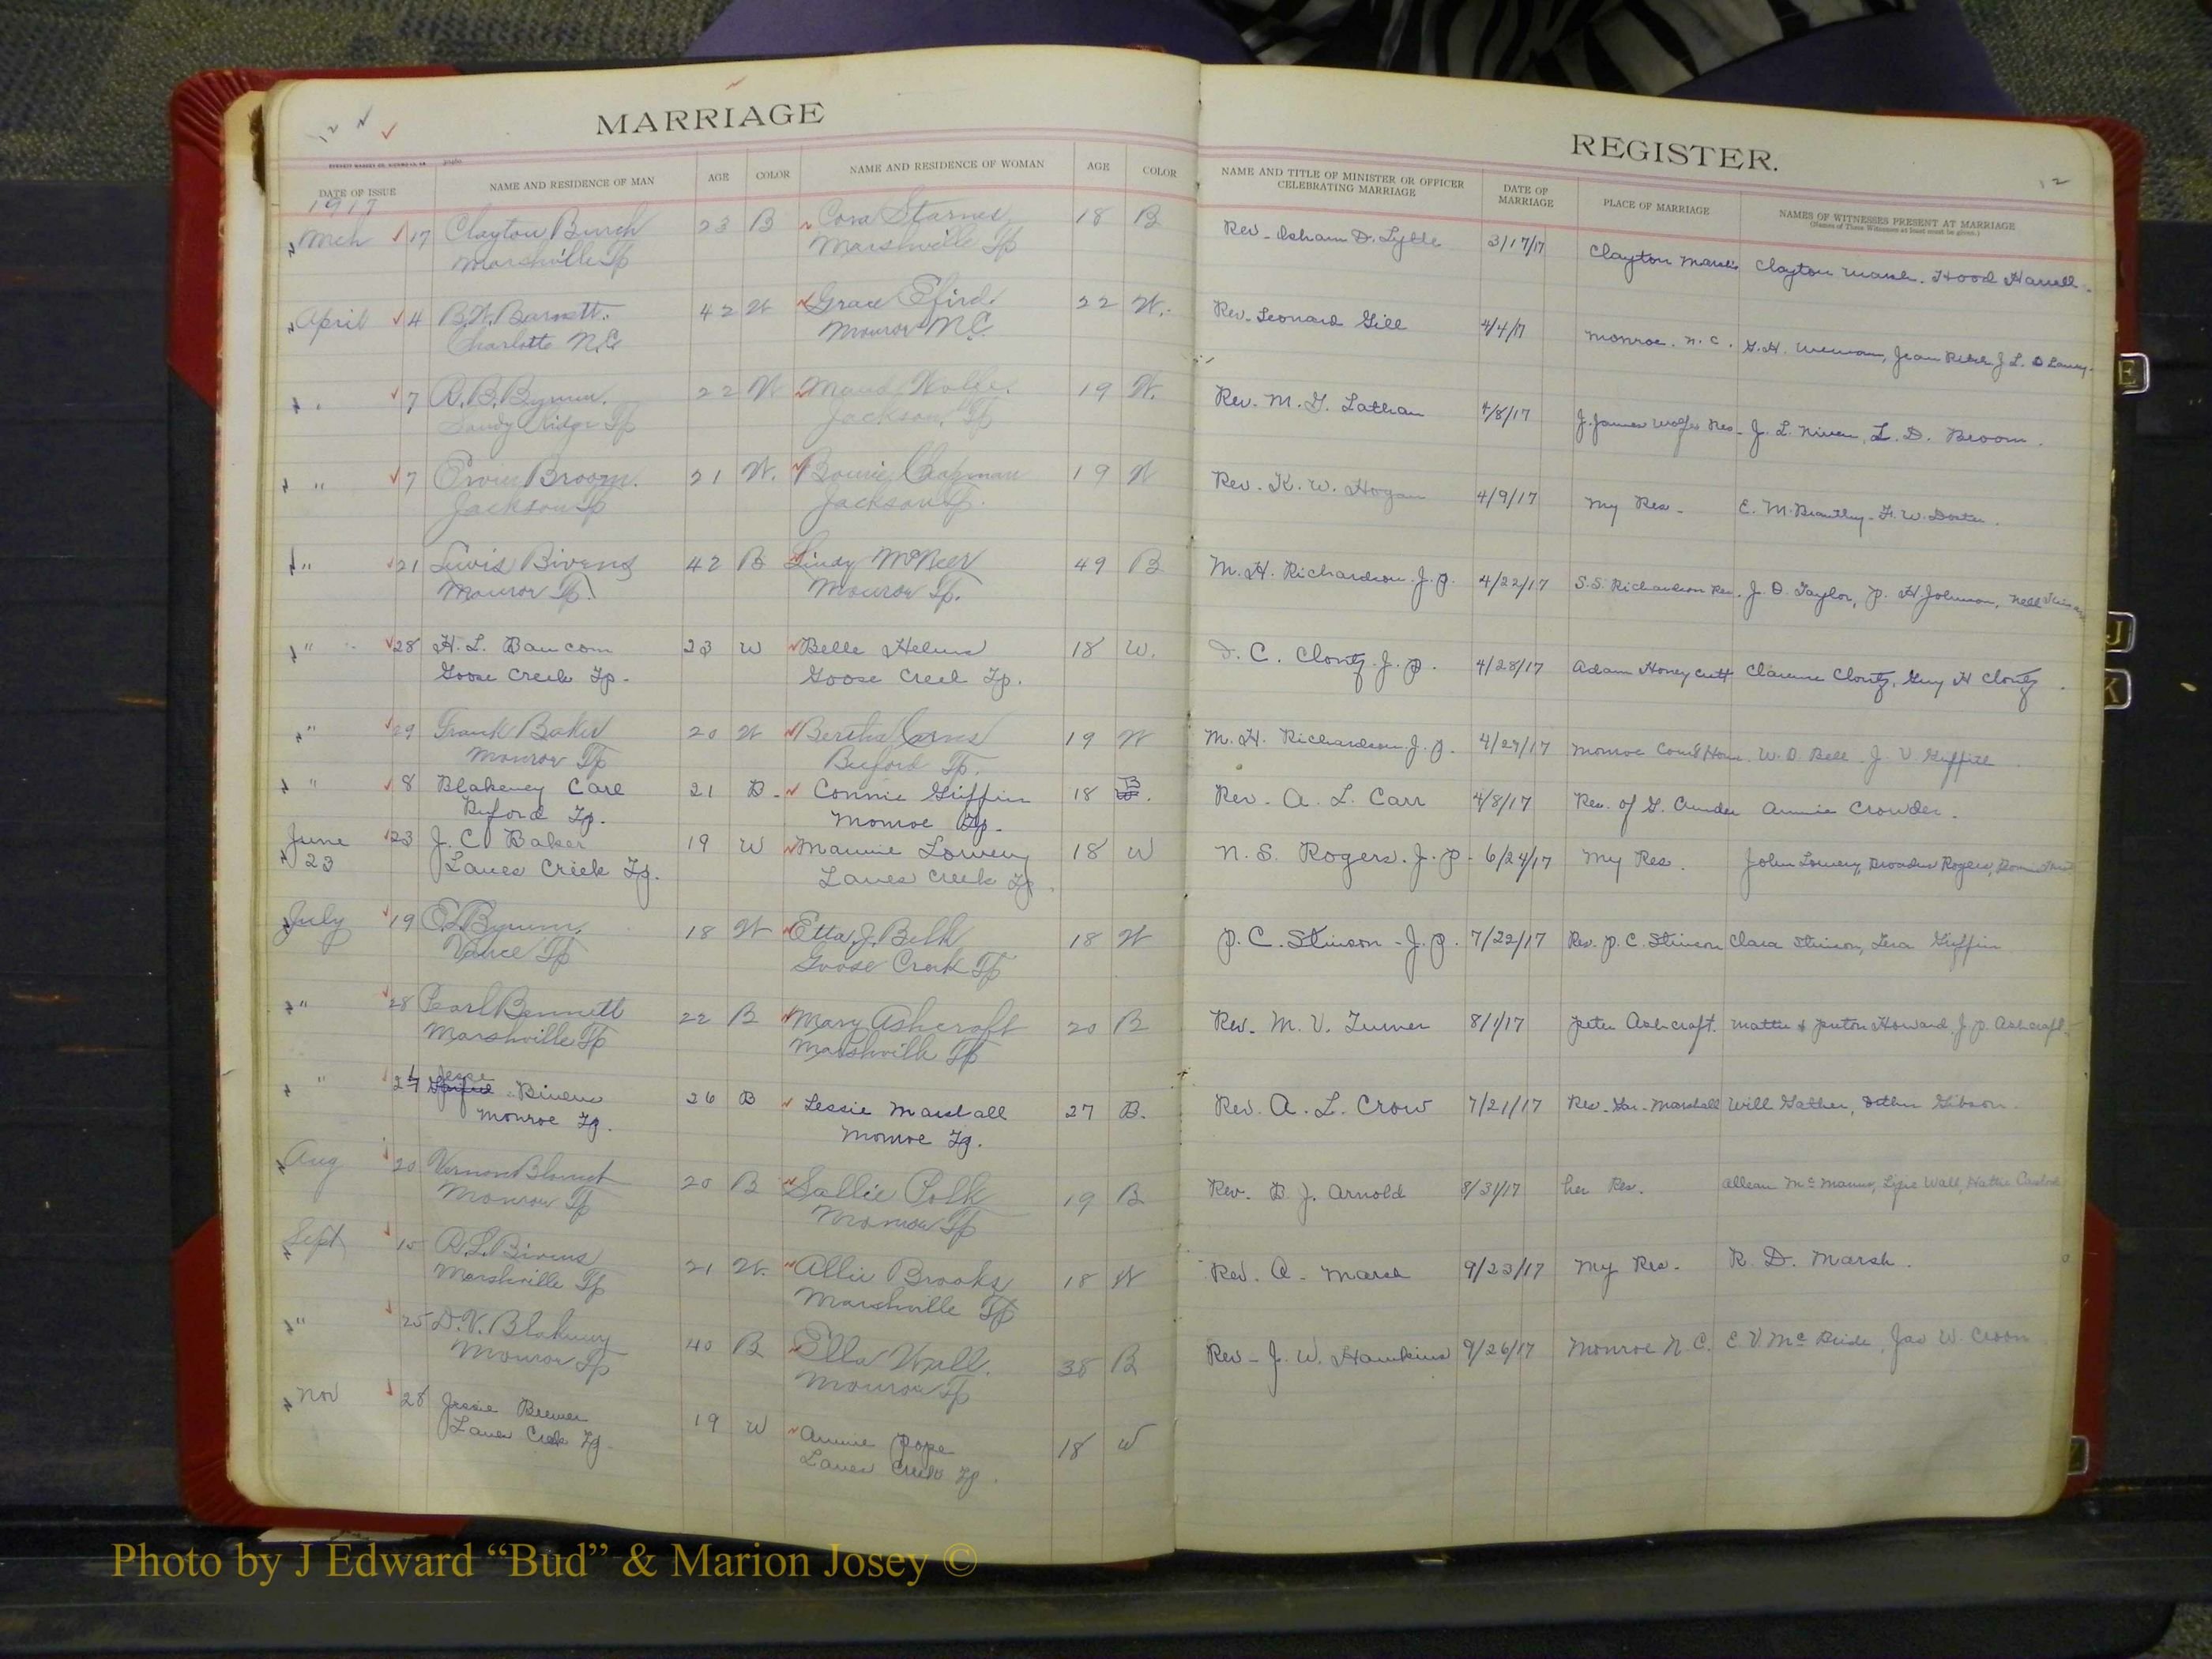 MARRIAGE
EVERETT WADDEY CO. RICHMOND, VA
DATE OF ISSUE NAME AND RESIDENCE OF MAN AGE COLOR NAME AND RESIDENCE OF WOMAN AGE COLOR
1917
Mch 17 Clayton Burch 23 B Cora Starnes 18 B
Marshville Tp Marshville Tp
April 4 B.W. Barnett. 42 W Grace Efird. 22 W.
Charlotte N.C. Monroe N.C.
" 7 R.B. Bynum. 22 W Maud Wolfe. 19 W.
Sandy Ridge Tp Jackson Tp
" 7 Ervin Broom. 21 W. Chapman 19 W
Jackson Tp Jackson Tp.
" 21 Lewis Bivens 42 B Lindy McNeer 49 B
Monroe Tp. Monroe Tp.
" 28 H. L. Baucom 23 W Belle Helms 18 W.
Goose Creek Tp. Goose Creek Tp.
" 29 Frank Baker 20 W Bertha 19 W
Monroe Tp Buford Tp.
" 8 Blakeney Carl 21 B. Connie Griffin 18 B.
Buford Tp. Monroe Tp.
June 23 J. C. Baker 19 W Mamie Lowery 18 W
23 Lanes Creek Tp. Lanes Creek Tp.
July 19 Bynum. 18 W Etta J. Belk 18 W
Vance Tp Goose Creek Tp
" 28 Pearl Bennett 22 B Mary Ashcraft 20 B
Marshville Tp Marshville Tp
Jesse
" 21 Bivens 26 B Lessie Marshall 27 B.
Monroe Tp. Monroe Tp.
Aug 20 Vernon Blount 20 B Sallie Polk 19 B
Monroe Tp Monroe Tp
Sept 15 R.L. Bivens 21 W. Allie Brooks 18 W
Marshville Tp Marshville Tp
" 25 D.V. Blakeney 40 B Ella Wall. 38 B
Monroe Tp Monroe Tp
Nov 28 Jessie Brewer 19 W Annie Pope 18 W
Lanes Creek Tp. Lanes Creek Tp.
REGISTER.
12
NAME AND TITLE OF MINISTER OR OFFICER CELEBRATING MARRIAGE DATE OF MARRIAGE PLACE OF MARRIAGE NAMES OF WITNESSES PRESENT AT MARRIAGE
(Names of Three Witnesses at least must be given.)
Rev. Isham D. Lytle 3/17/17 Clayton Marsh Clayton Marsh. Hood Harrell.
Rev. Leonard Gill 4/4/17 Monroe. N. C. J. L. D Laney.
Rev. M. G. Latham 4/8/17 J. James Wolfe Res. J. L. Niven, L. D. Broom.
Rev. K. W. Hogan 4/9/17 My Res. E. M. Brantley. H. W. Doster.
M. H. Richardson. J. P. 4/22/17 S.S. Richardson Res. J. D. Taylor, P. H Johnson, Nell
D. C. Clontz. J. P. 4/28/17 Adam Honeycutt Clarence Clontz, Guy H Clontz.
M. H. Richardson. J. P. 4/29/17 Monroe Court House. W. D. Bell. J. V Griffith
Rev. A. L. Carr 4/8/17 Res. of G. Annie Crowder.
N. S. Rogers. J. P. 6/24/17 My Res. John Lowery, Rogers,
P. C. Stinson. J. P. 7/22/17 Res. P. C. Stinson Clara Stinson, Griffin
Rev. M. V. Turner 8/1/17 Peter Ashcraft. Mattie & Howard, J. P. Ashcraft.
Rev. A. L. Crow 7/21/17 Res. Marshall Will Gather, Gibson.
Rev. B. J. Arnold 8/31/17 her Res. McManus, Wall, Hattie
Rev. A. Marsh 9/23/17 My Res. R. D. Marsh.
Rev. J. W. Hawkins 9/26/17 Monroe N. C. E. V. Mc Jas W.
E
J
K
Photo by J Edward “Bud” & Marion Josey ©